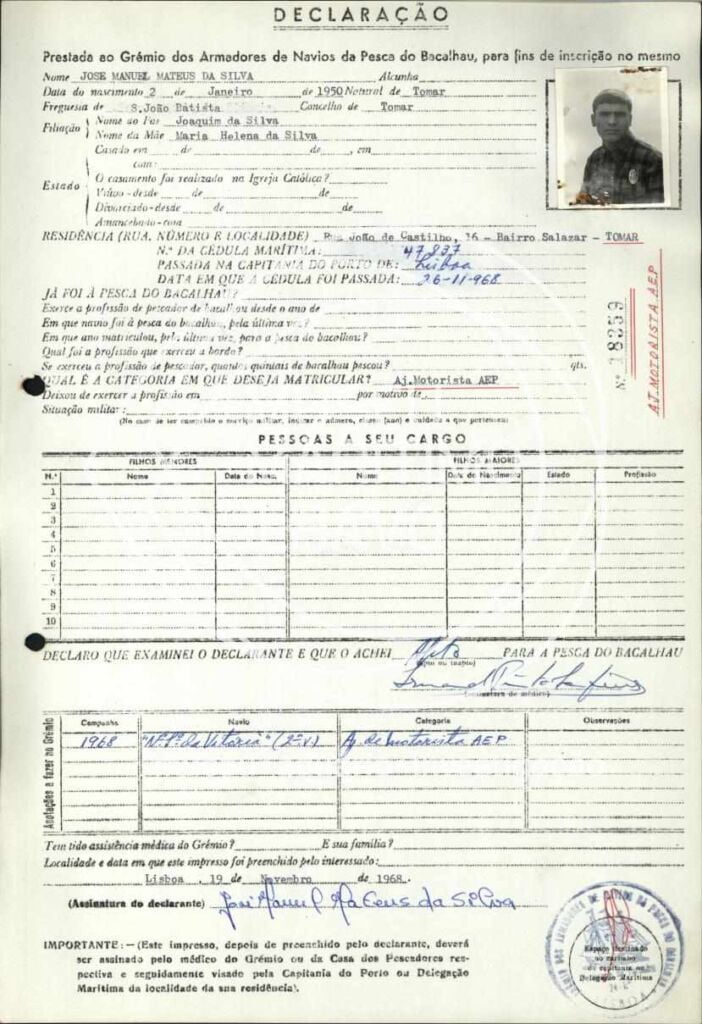 DECLARAÇÃO
Prestada ao Grémio dos Armadores de Navios da Pesca do Bacalhau, para fins de inscrição no mesmo
Nome JOSE MANUEL MATEUS DA SILVA Alcunha
Data do nascimento 2 de Janeiro de 1950 Natural de Tomar
Freguesia de S.João Batista Concelho de Tomar
Filiação
Nome do Pai Joaquim da Silva
Nome da Mãe Maria Helena da Silva
Estado
Casado em de de , em
com:
O casamento foi realizado na Igreja Católica?
Viúvo-desde de de
Divorciado-desde de de
Amancebado-com
RESIDÊNCIA (RUA, NÚMERO E LOCALIDADE) Rua João de Castilho, 16 - Bairro Salazar - TOMAR
N.º DA CÉDULA MARÍTIMA: 47837
PASSADA NA CAPITANIA DO PORTO DE: Lisboa
DATA EM QUE A CÉDULA FOI PASSADA: 26-11-968
JÁ FOI À PESCA DO BACALHAU?
Exerce a profissão de pescador de bacalhau desde o ano de
Em que navio foi à pesca do bacalhau, pela última vez?
Em que ano matriculou, pela última vez, para a pesca do bacalhau?
Qual foi a profissão que exerceu a bordo?
Se exerceu a profissão de pescador, quantos quintais de bacalhau pescou? qts.
QUAL É A CATEGORIA EM QUE DESEJA MATRICULAR? Aj.Motorista AEP
Deixou de exercer a profissão em por motivo de
Situação militar:
(No caso de ter cumprido o serviço militar, indicar o número, classe (ano) e unidade a que pertenceu)
N.º 18359
AJ. MOTORISTA AEP
PESSOAS A SEU CARGO
FILHOS MENORES FILHOS MAIORES
N.º Nome Data do Nasc. Nome Data do Nascimento Estado Profissão
1
2
3
4
5
6
7
8
9
10
DECLARO QUE EXAMINEI O DECLARANTE E QUE O ACHEI Apto PARA A PESCA DO BACALHAU
(apto ou inapto)
(assinatura do médico)
Anotações a fazer no Grémio
Campanha Navio Categoria Observações
1968 "Nª Sª da Vitória" (2ª v.) Aj. de motorista AEP
Tem tido assistência médica do Grémio? E sua família?
Localidade e data em que este impresso foi preenchido pelo interessado:
Lisboa, 19 de Novembro de 1968.
(Assinatura do declarante) José Manuel Mateus da Silva
IMPORTANTE:—(Este impresso, depois de preenchido pelo declarante, deverá
ser assinado pelo médico do Grémio ou da Casa dos Pescadores res-
pectiva e seguidamente visado pela Capitania do Porto ou Delegação
Marítima da localidade da sua residência).
Espaço destinado
ao carimbo
da capitania ou
Delegação Marítima
LISBOA